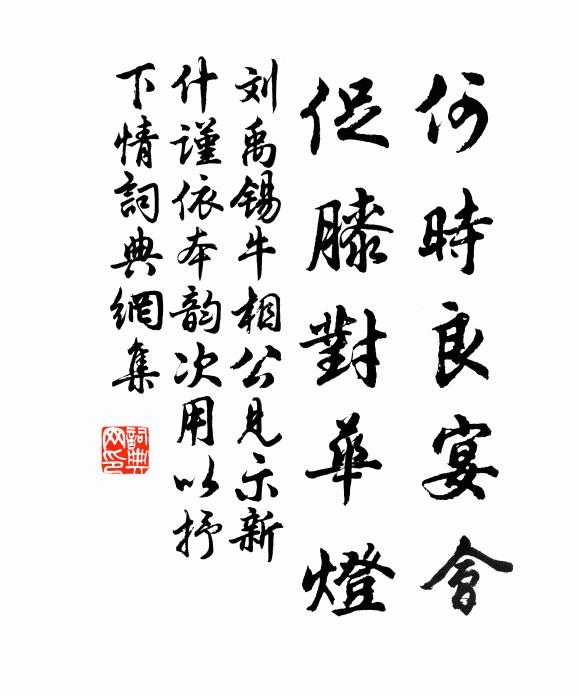 何時良宴會
促膝對華燈
刘禹锡牛相公見示新
什謹依本韵次用以抒
下情詞典網集
詞典
网印